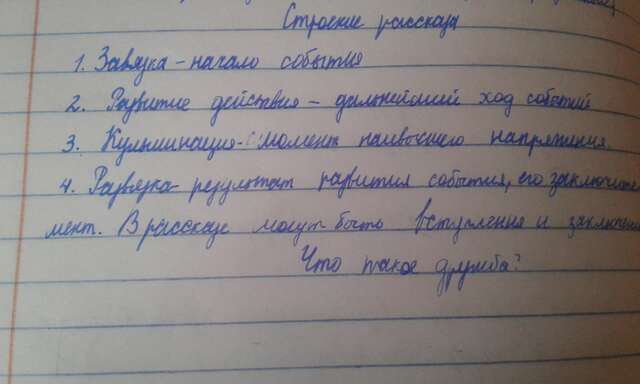 Строение рассказа
1. Завязка - начало события
2. Развитие действия - дальнейший ход событий
3. Кульминация - момент наивысшего напряжения
4. Развязка - результат развития события, его заключительный
мент. В рассказе могут быть вступление и заключ
Что такое дружба?